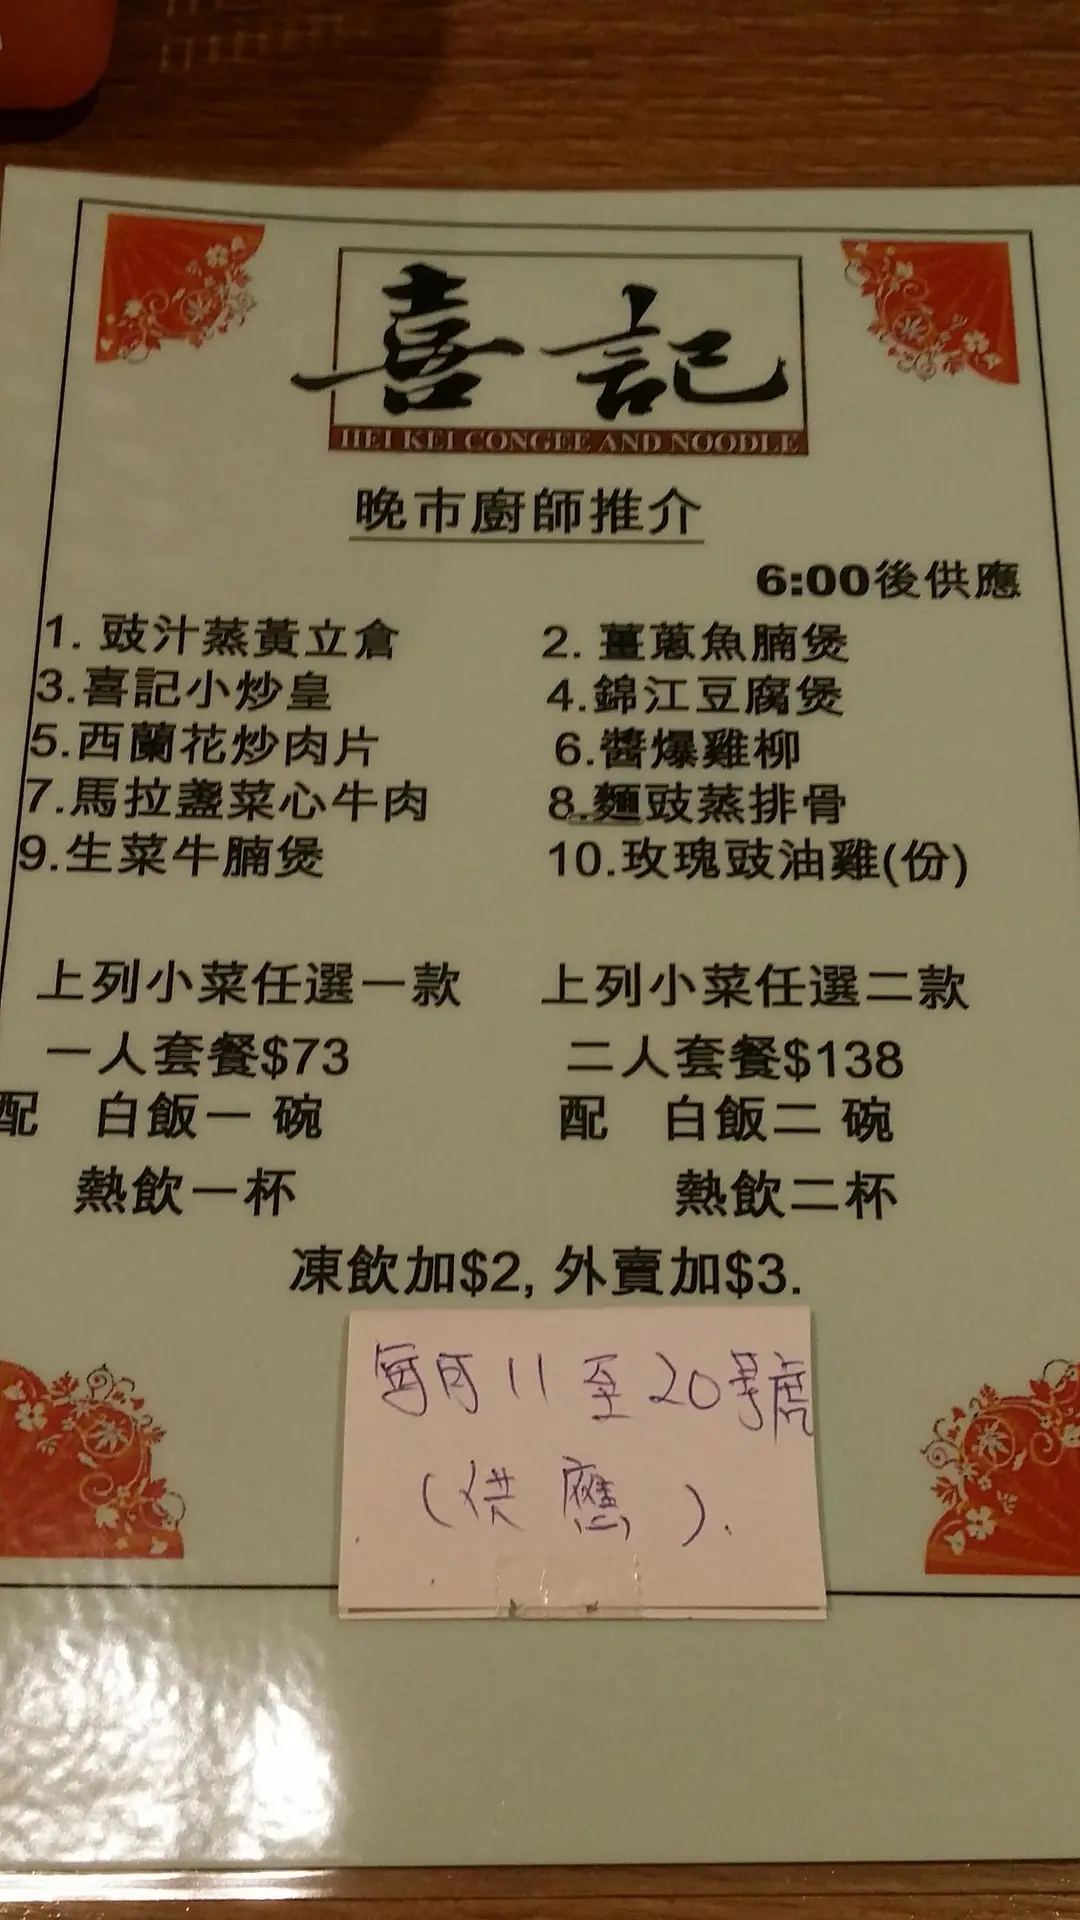 喜記
HEI KEI CONGEE AND NOODLE
晚市廚師推介
6:00後供應
1. 豉汁蒸黃立倉
2. 薑蔥魚腩煲
3.喜記小炒皇
4.錦江豆腐煲
5.西蘭花炒肉片
6.醬爆雞柳
7.馬拉盞菜心牛肉
8.麵豉蒸排骨
9.生菜牛腩煲
10.玫瑰豉油雞(份)
上列小菜任選一款
一人套餐$73
配 白飯一 碗
熱飲一杯
上列小菜任選二款
二人套餐$138
配 白飯二 碗
熱飲二杯
凍飲加$2, 外賣加$3.
每月11至20號
(供應).